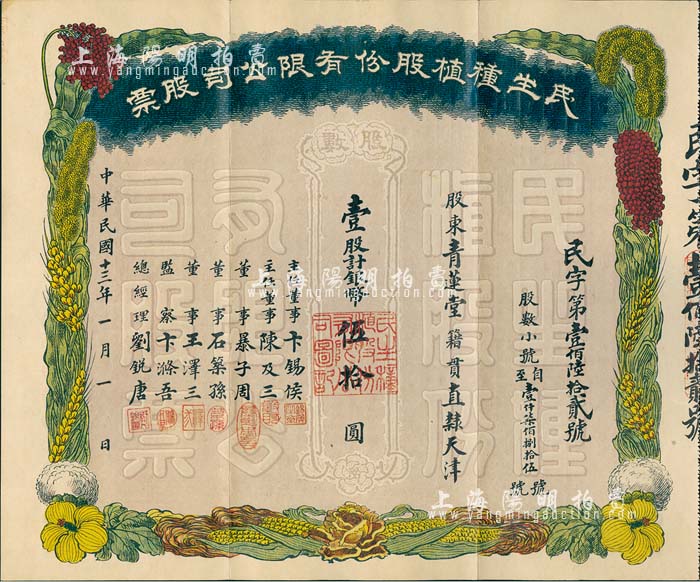 民生種植股份有限公司股票
股數
民字第壹佰陸拾貳號
股數小號自壹仟柒佰捌拾伍號
至 號
股東青蓮堂籍貫直隸天津
壹股計銀幣伍拾圓
主任董事卞錫侯
主任董事陳及三
董事暴子周
董事石築孫
董事王澤三
監察卞滌吾
總經理劉銳唐
中華民國十三年一月一日
民生種植股份有限公司股票
上海陽明拍賣
www.yangmingauction.com
上海陽明拍賣
www.yangmingauction.com
上海陽明拍賣
www.yangmingauction.com